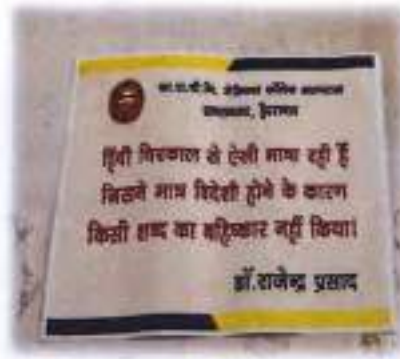 हिंदी चिरकाल से ऐसी भाषा रही है
जिसने मात्र विदेशी होने के कारण
किसी शब्द का बहिष्कार नहीं किया।
डॉ. राजेन्द्र प्रसाद